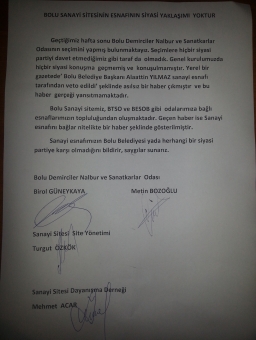 BOLU SANAYİ SİTESİNİN ESNAFININ SİYASİ YAKLAŞIMI YOKTUR
Geçtiğimiz hafta sonu Bolu Demirciler Nalbur ve Sanatkarlar
Odasının seçimini yapmış bulunmaktayız. Seçimlere hiçbir siyasi
partiyi davet etmediğimiz gibi taraf da olmadık. Genel kurulumuzda
hiçbir siyasi konuşma geçmemiş ve konuşulmamıştır. Yerel bir
gazetede' Bolu Belediye Başkanı Alaattin YILMAZ sanayi esnafı
tarafından veto edildi' şeklinde asılsız bir haber çıkmıştır ve bu
haber gerçeği yansıtmamaktadır.
Bolu Sanayi sitemiz, BTSO ve BESOB gibi odalarımıza bağlı
esnaflarımızın topluluğundan oluşmaktadır. Geçen haber ise Sanayi
esnafını bağlar nitelikte bir haber şeklinde gösterilmiştir.
Sanayi esnafımızın Bolu Belediyesi yada herhangi bir siyasi
partiye karşı olmadığını bildirir, saygılar sunarız.
Bolu Demirciler Nalbur ve Sanatkarlar Odası
Birol GÜNEYKAYA Metin BOZOĞLU
Sanayi Sitesi Site Yönetimi
Turgut ÖZKÖK
Sanayi Sitesi Dayanışma Derneği
Mehmet ACAR